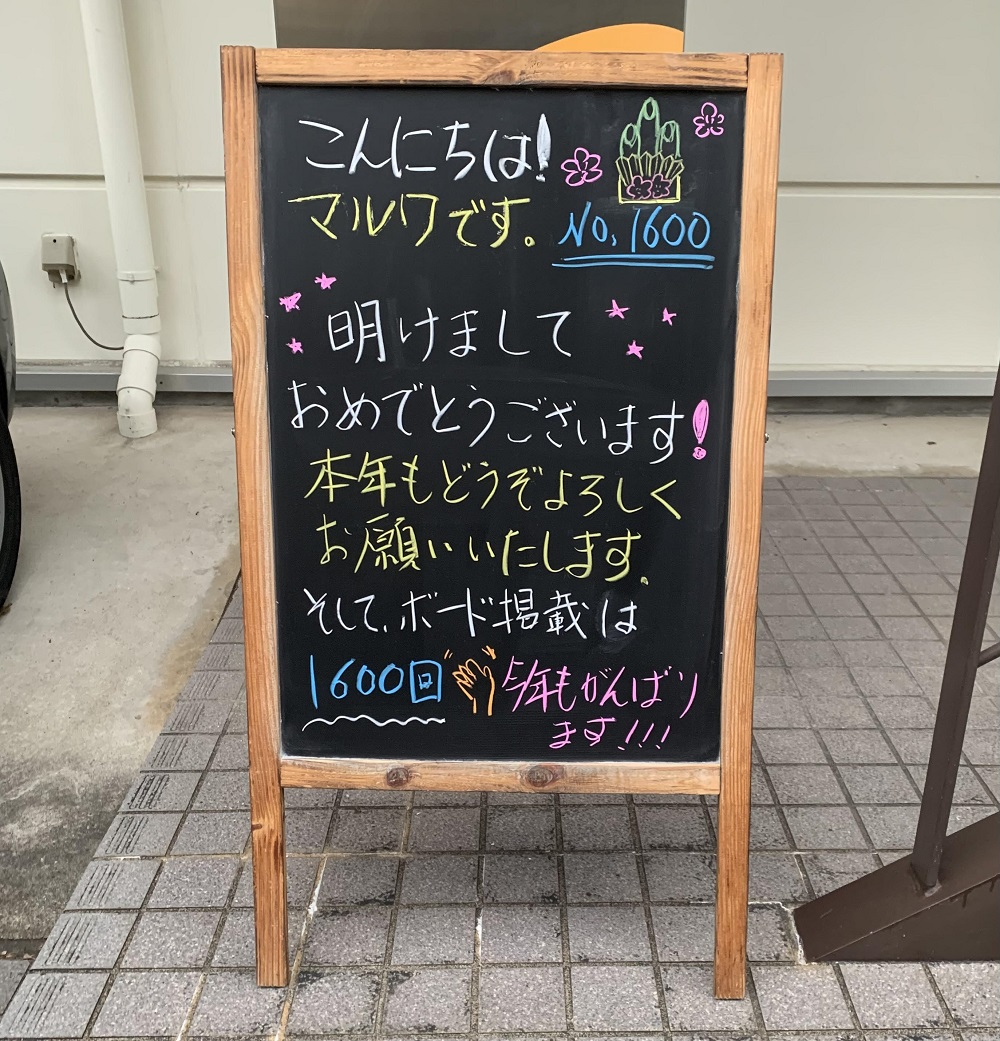 こんにちは!
マルワです。 No,1600
明けまして
おめでとうございます!
本年もどうぞよろしく
お願いいたします。
そして、ボード掲載は
1600回 今年もがんばり
ます!!!